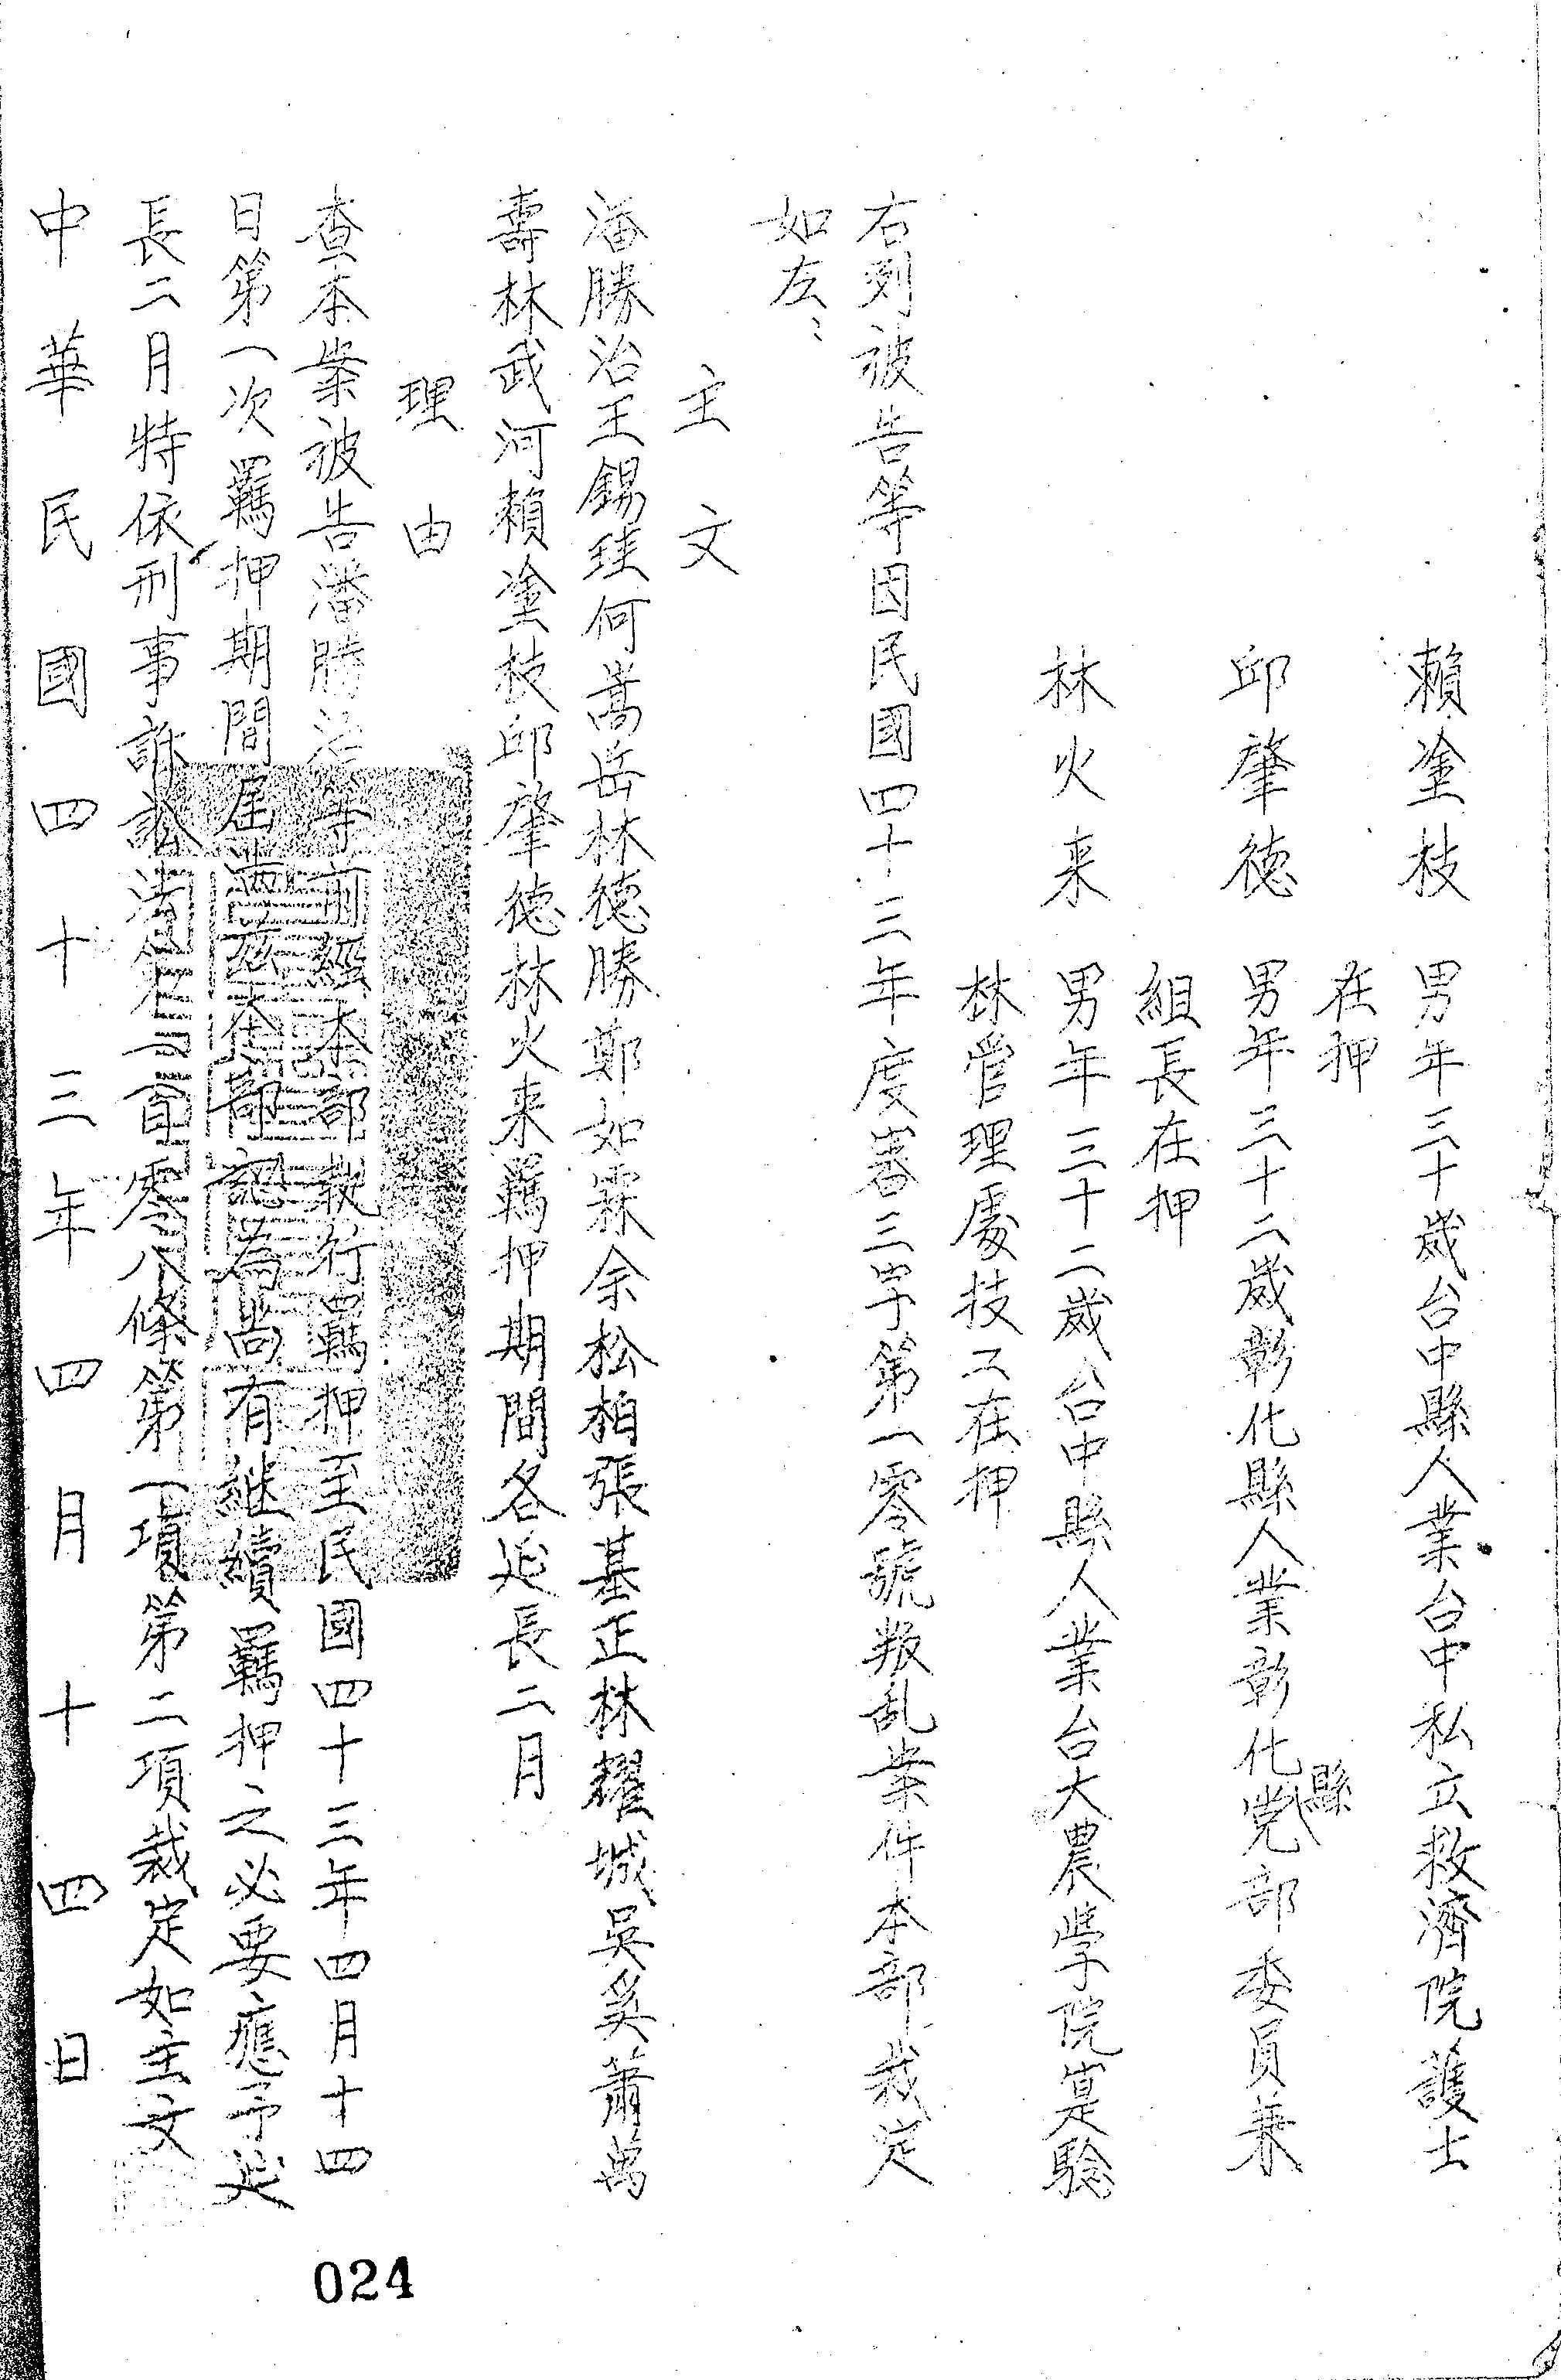 賴塗枝　男年三十歲台中縣人業台中私立救濟院護士
在押
邱肇德　男年三十二歲彰化縣人業彰化縣党部委員兼
組長在押
林火来　男年三十二歲台中縣人業台大農學院實驗
林管理處技工在押
右列被告等因民國四十三年度審三字第一零號叛乱案件本部裁定
如左：
主文
潘勝治王錫珪何嵩岳林德勝鄭如霖余松柏張基正林耀城吳奚蕭萬
壽林武河賴塗枝邱肇德林火来羈押期間各延長二月
理由
查本案被告潘勝治等前經本部執行羈押至民國四十三年四月十四
日第一次羈押期間屆滿茲本部認為尚有継續羈押之必要應予延
長二月特依刑事訴訟法第一百零八條第一項第二項裁定如主文
中華民國四十三年四月十四日
024